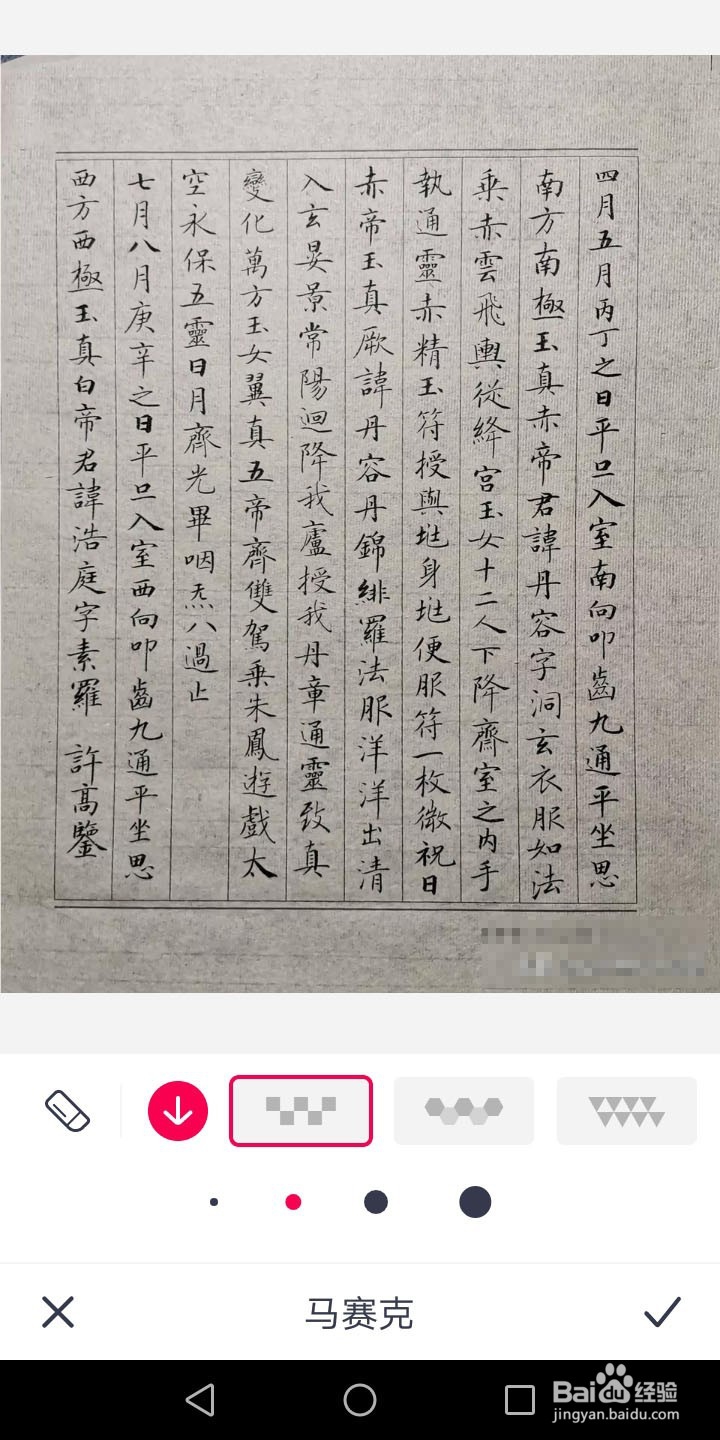 四月五月丙丁之日平旦入室南向叩齒九通平坐思
南方南極玉真赤帝君諱丹容字洞玄衣服如法
乘赤雲飛輿從絳宮玉女十二人下降齋室之內手
執通靈赤精玉符授與兆身兆便服符一枚微祝曰
赤帝玉真厥諱丹容丹錦緋羅法服洋洋出清
入玄晏景常陽迴降我廬授我丹章通靈致真
變化萬方玉女翼真五帝齊雙駕乘朱鳳遊戲太
空永保五靈日月齊光畢咽炁八過止
七月八月庚辛之日平旦入室西向叩齒九通平坐思
西方西極玉真白帝君諱浩庭字素羅 許高鑒
马赛克
Baidu经验
jingyan.baidu.com